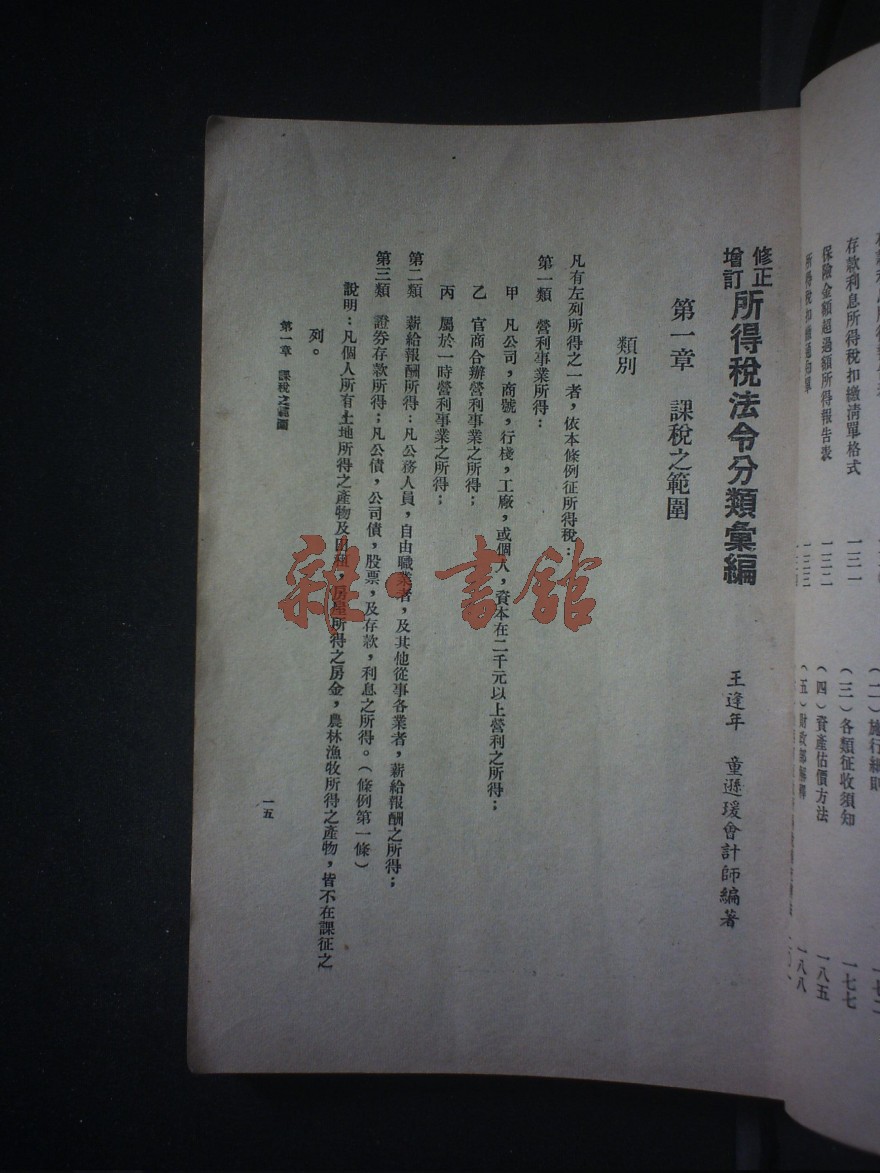 存款利息所得稅扣繳清單格式 一三一
保險金額超過額所得報告表 一三二
所得稅扣繳通知單 一三三
(三)各類征收須知 一七七
(四)資產估價方法 一八五
(五)財政部解釋 一八八
修正增訂所得稅法令分類彙編
王逢年 童遜瑗會計師編著
第一章 課稅之範圍
類別
凡有左列所得之一者,依本條例征所得稅:
第一類 營利事業所得:
甲 凡公司,商號,行棧,工廠,或個人,資本在二千元以上營利之所得;
乙 官商合辦營利事業之所得;
丙 屬於一時營利事業之所得;
第二類 薪給報酬所得:凡公務人員,自由職業者,及其他從事各業者,薪給報酬之所得;
第三類 證券存款所得;凡公債,公司債,股票,及存款,利息之所得。(條例第一條)
說明:凡個人所有土地所得之產物及田租,房屋所得之房金,農林漁牧所得之產物,皆不在課征之
列。
第一章 課稅之範圍
一五
雜·書館